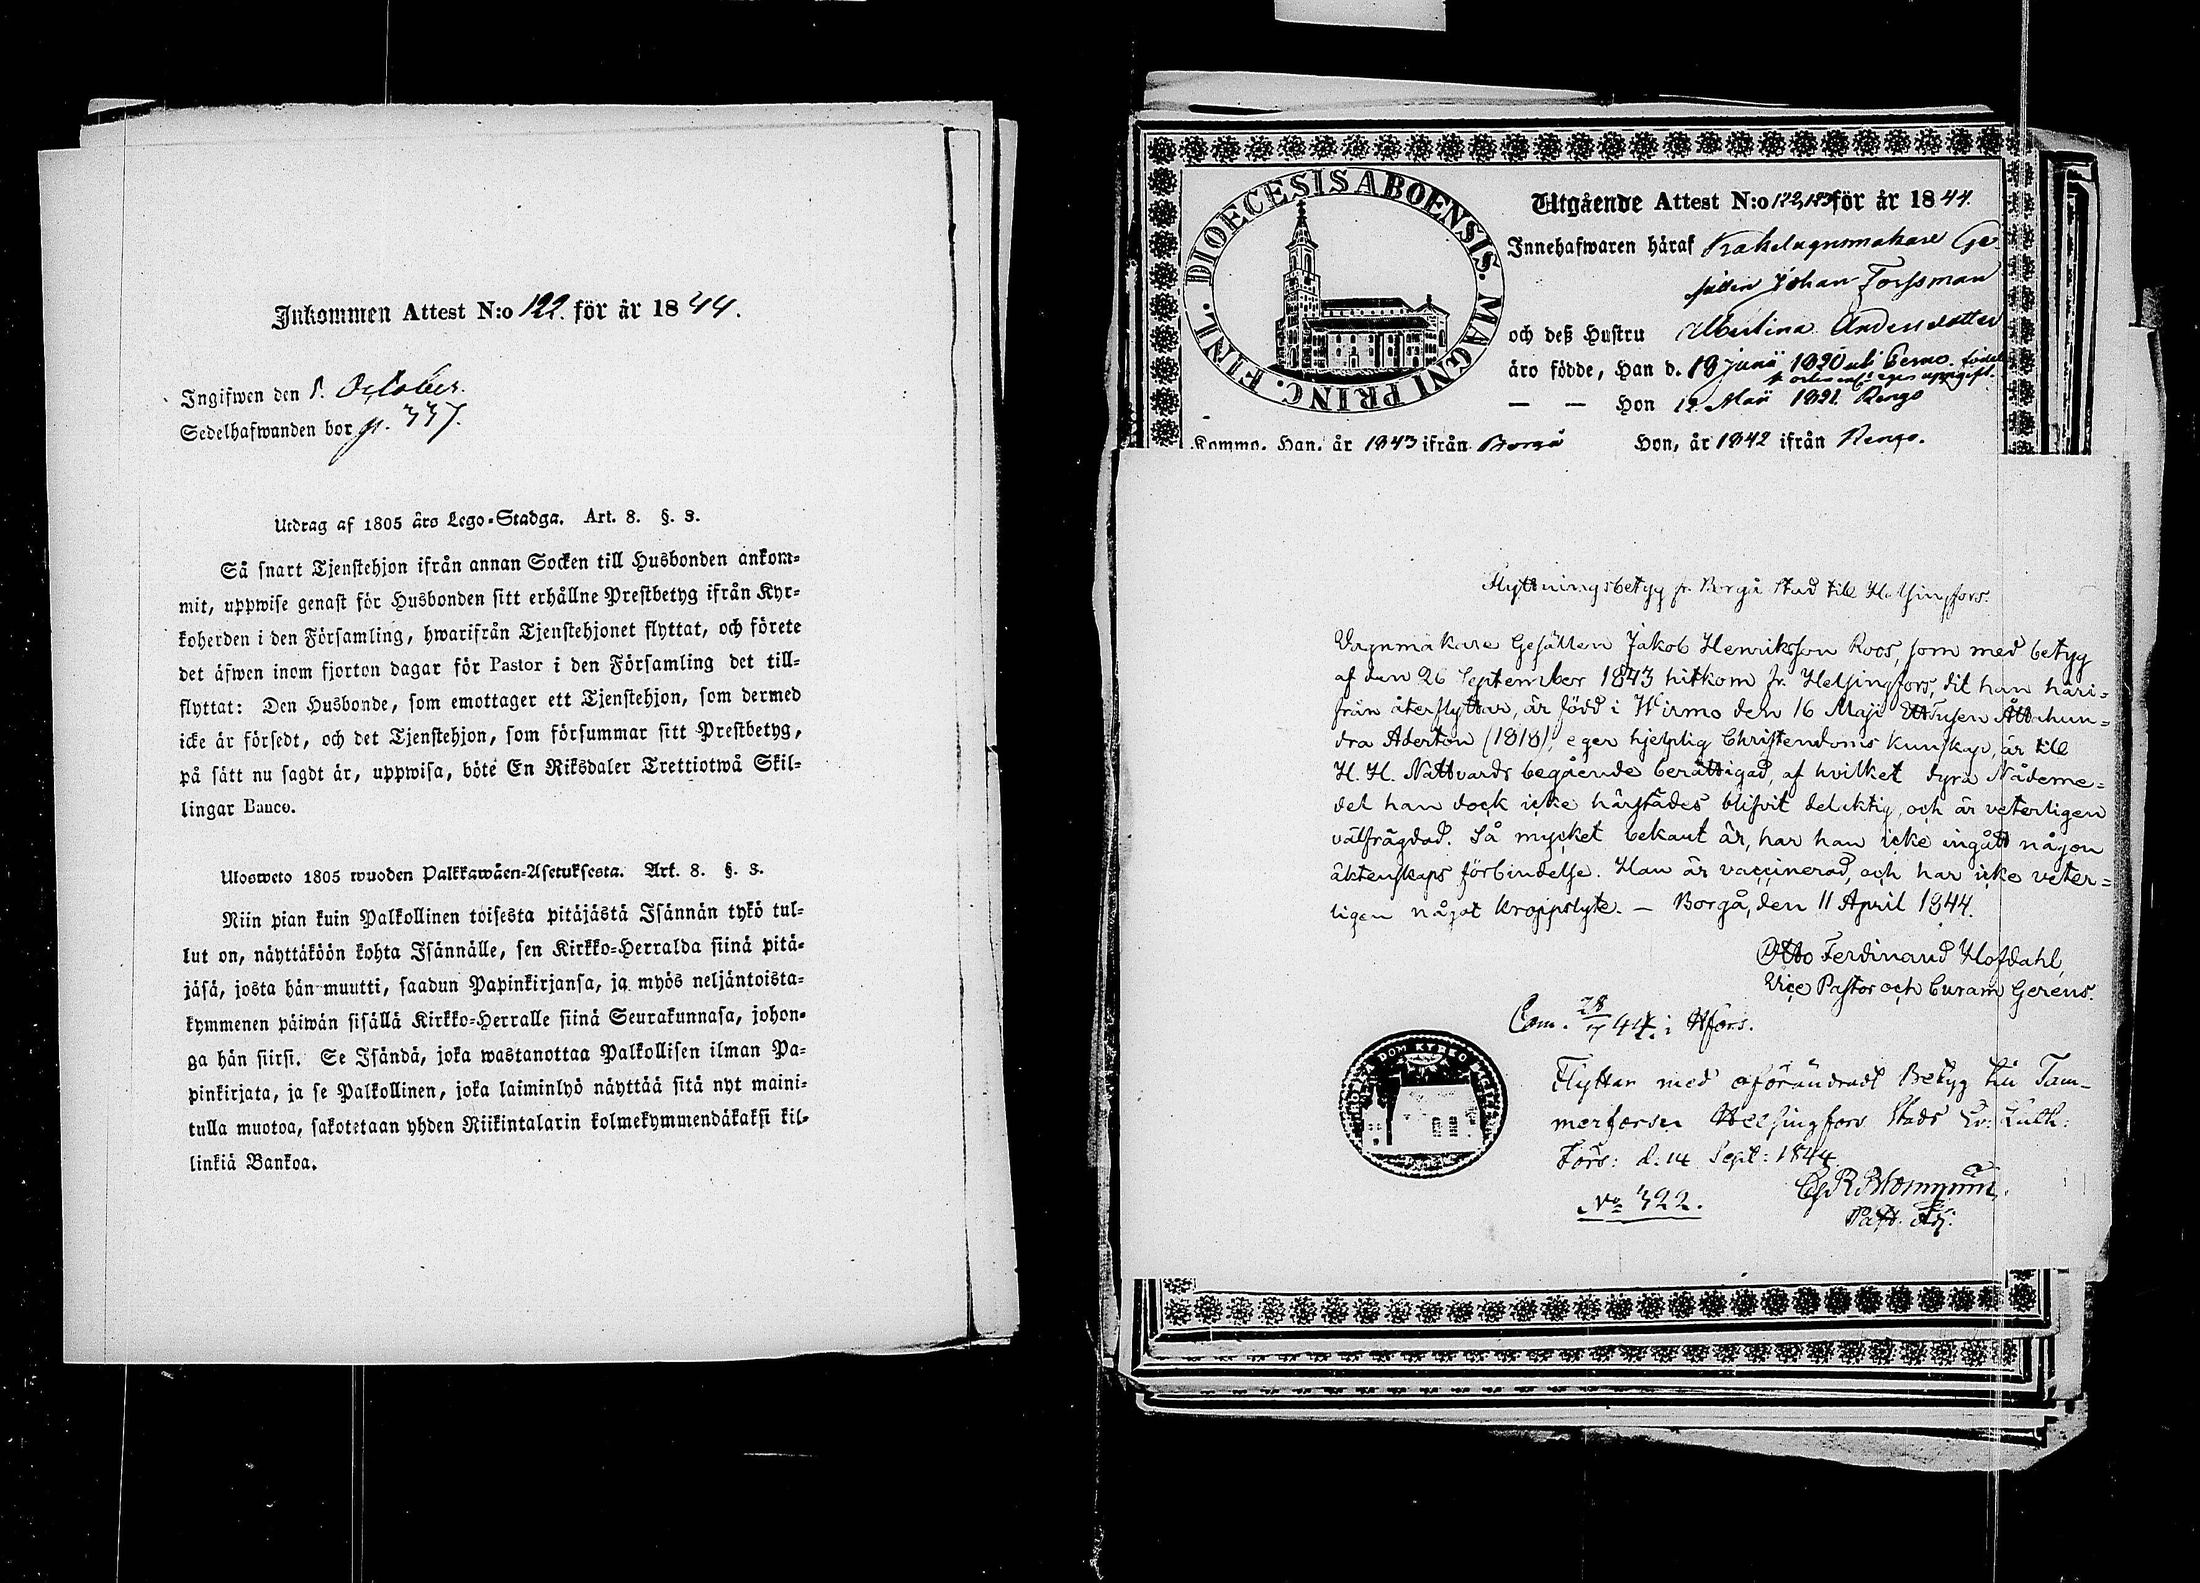 Inkommen Attest N:o 122. för år 1844.
Ingifwen den 1. October.
Sedelhafwanden bor p. 337.
Utdrag af 1805 års Lego-Stadga. Art. 8. §. 3.
Så snart Tjenstehjon ifrån annan Socken till Husbonden ankom-
mit, uppwise genast för Husbonden sitt erhållne Prestbetyg ifrån Kyr-
koherden i den Församling, hwarifrån Tjenstehjonet flyttat, och förete
det äfwen inom fjorton dagar för Pastor i den Församling det till-
flyttat: Den Husbonde, som emottager ett Tjenstehjon, som dermed
icke är försedt, och det Tjenstehjon, som försummar sitt Prestbetyg,
på sätt nu sagdt är, uppwisa, böte En Riksdaler Trettiotwå Skil-
lingar Banco.
Ulosweto 1805 wuoden Palkkawäen-Asetuksesta. Art. 8. §. 3.
Niin pian kuin Palkollinen toisesta pitäjästä Isännän tykö tul-
lut on, näyttäköön kohta Isännälle, sen Kirkko-Herralda siinä pitä-
jäsä, josta hän muutti, saadun Papinkirjansa, ja myös neljäntoista-
kymmenen päiwän sisällä Kirkko-Herralle siinä Seurakunnasa, johon-
ga hän siirsi. Se Isändä, joka wastanottaa Palkollisen ilman Pa-
pinkirjata, ja se Palkollinen, joka laiminlyö näyttää sitä nyt maini-
tulla muotoa, sakotetaan yhden Riikintalarin kolmekymmendäkaksi kil-
linkiä Bankoa.
DIOECESIS ABOENSIS. MAGNI PRINC. FINL.
Utgående Attest N:o 122,123 för år 1844.
Innehafwaren häraf Kakelugnsmakare Ge-
sällen Johan Forssman
och deß Hustru Albertina Andersdotter
äro födde, Han d. 18 Junii 1820 uti Perno
Hon 12 Maii 1821. Rengo
Kommo, Han, år 1843 ifrån Borgå Hon, år 1842 ifrån Rengo.
Flyttningsbetyg fr. Borgå Stad till Helsingfors.
Vagnmakare Gesällen Jakob Henriksson Roos, som med betyg
af den 26 September 1843 hitkom fr. Helsingfors, dit han häri-
från återflyttar, är född i Wirmo den 16 Maji Ettusen Åttahun-
dra Aderton (1818), eger hjelplig Christendoms kunskap, är till
H. H. Nattvards begående berättigad, af hvilket dyra Nådeme-
del han dock icke härstädes blifvit delaktig, och är veterligen
välfrägdad. Så mycket bekant är, har han icke ingått någon
äktenskaps förbindelse. Han är vaccinerad, och har icke veter-
ligen något kroppslyte. – Borgå, den 11 April 1844.
Otto Ferdinand Hofdahl,
Vice Pastor och Curam Gerens.
Com. 28/7 44. i Hfors.
DOM KYRKO
Flyttar med oförändradt Betyg till Tam-
merforsen Helsingfors Stads Ev: Luth:
Förs: d. 14 Sept: 1844
No 322.
Past. Adj: